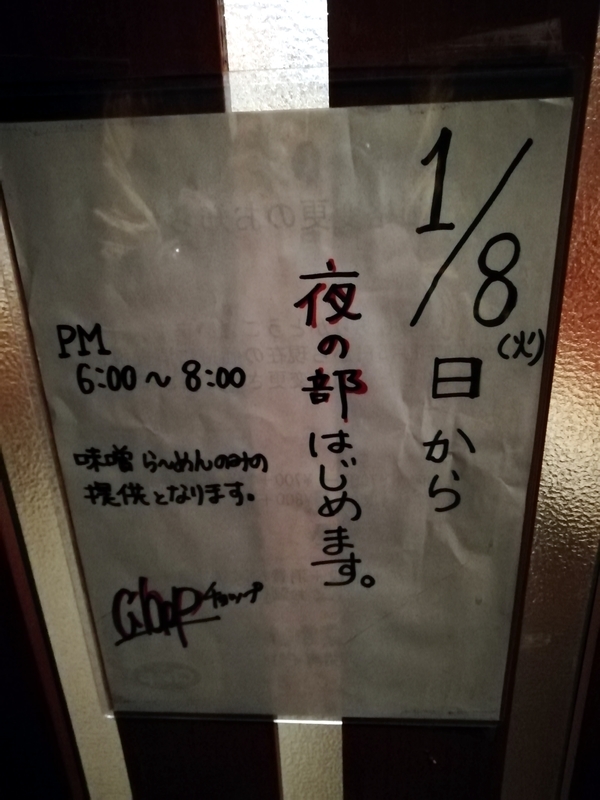 1/8(火)日から
夜の部はじめます。
PM
6:00～8:00
味噌らーめんのみの
提供となります。
Chop チョップ